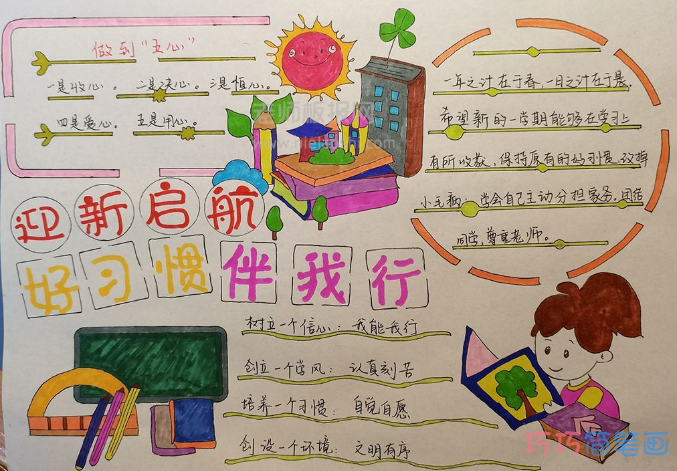 做到“五心”
一是收心。 二是决心。 三是恒心。
四是爱心。 五是用心。
一年之计在于春，一日之计在于晨，
希望新的一学期能够在学习上
有所收获，保持原有的好习惯，改掉
小毛病。学会自己主动分担家务，团结
同学，尊重老师。
迎新启航
好习惯伴我行
树立一个信心：我能我行
创立一个学风：认真刻苦
培养一个习惯：自觉自愿
创设一个环境：文明有序
巧巧简笔画